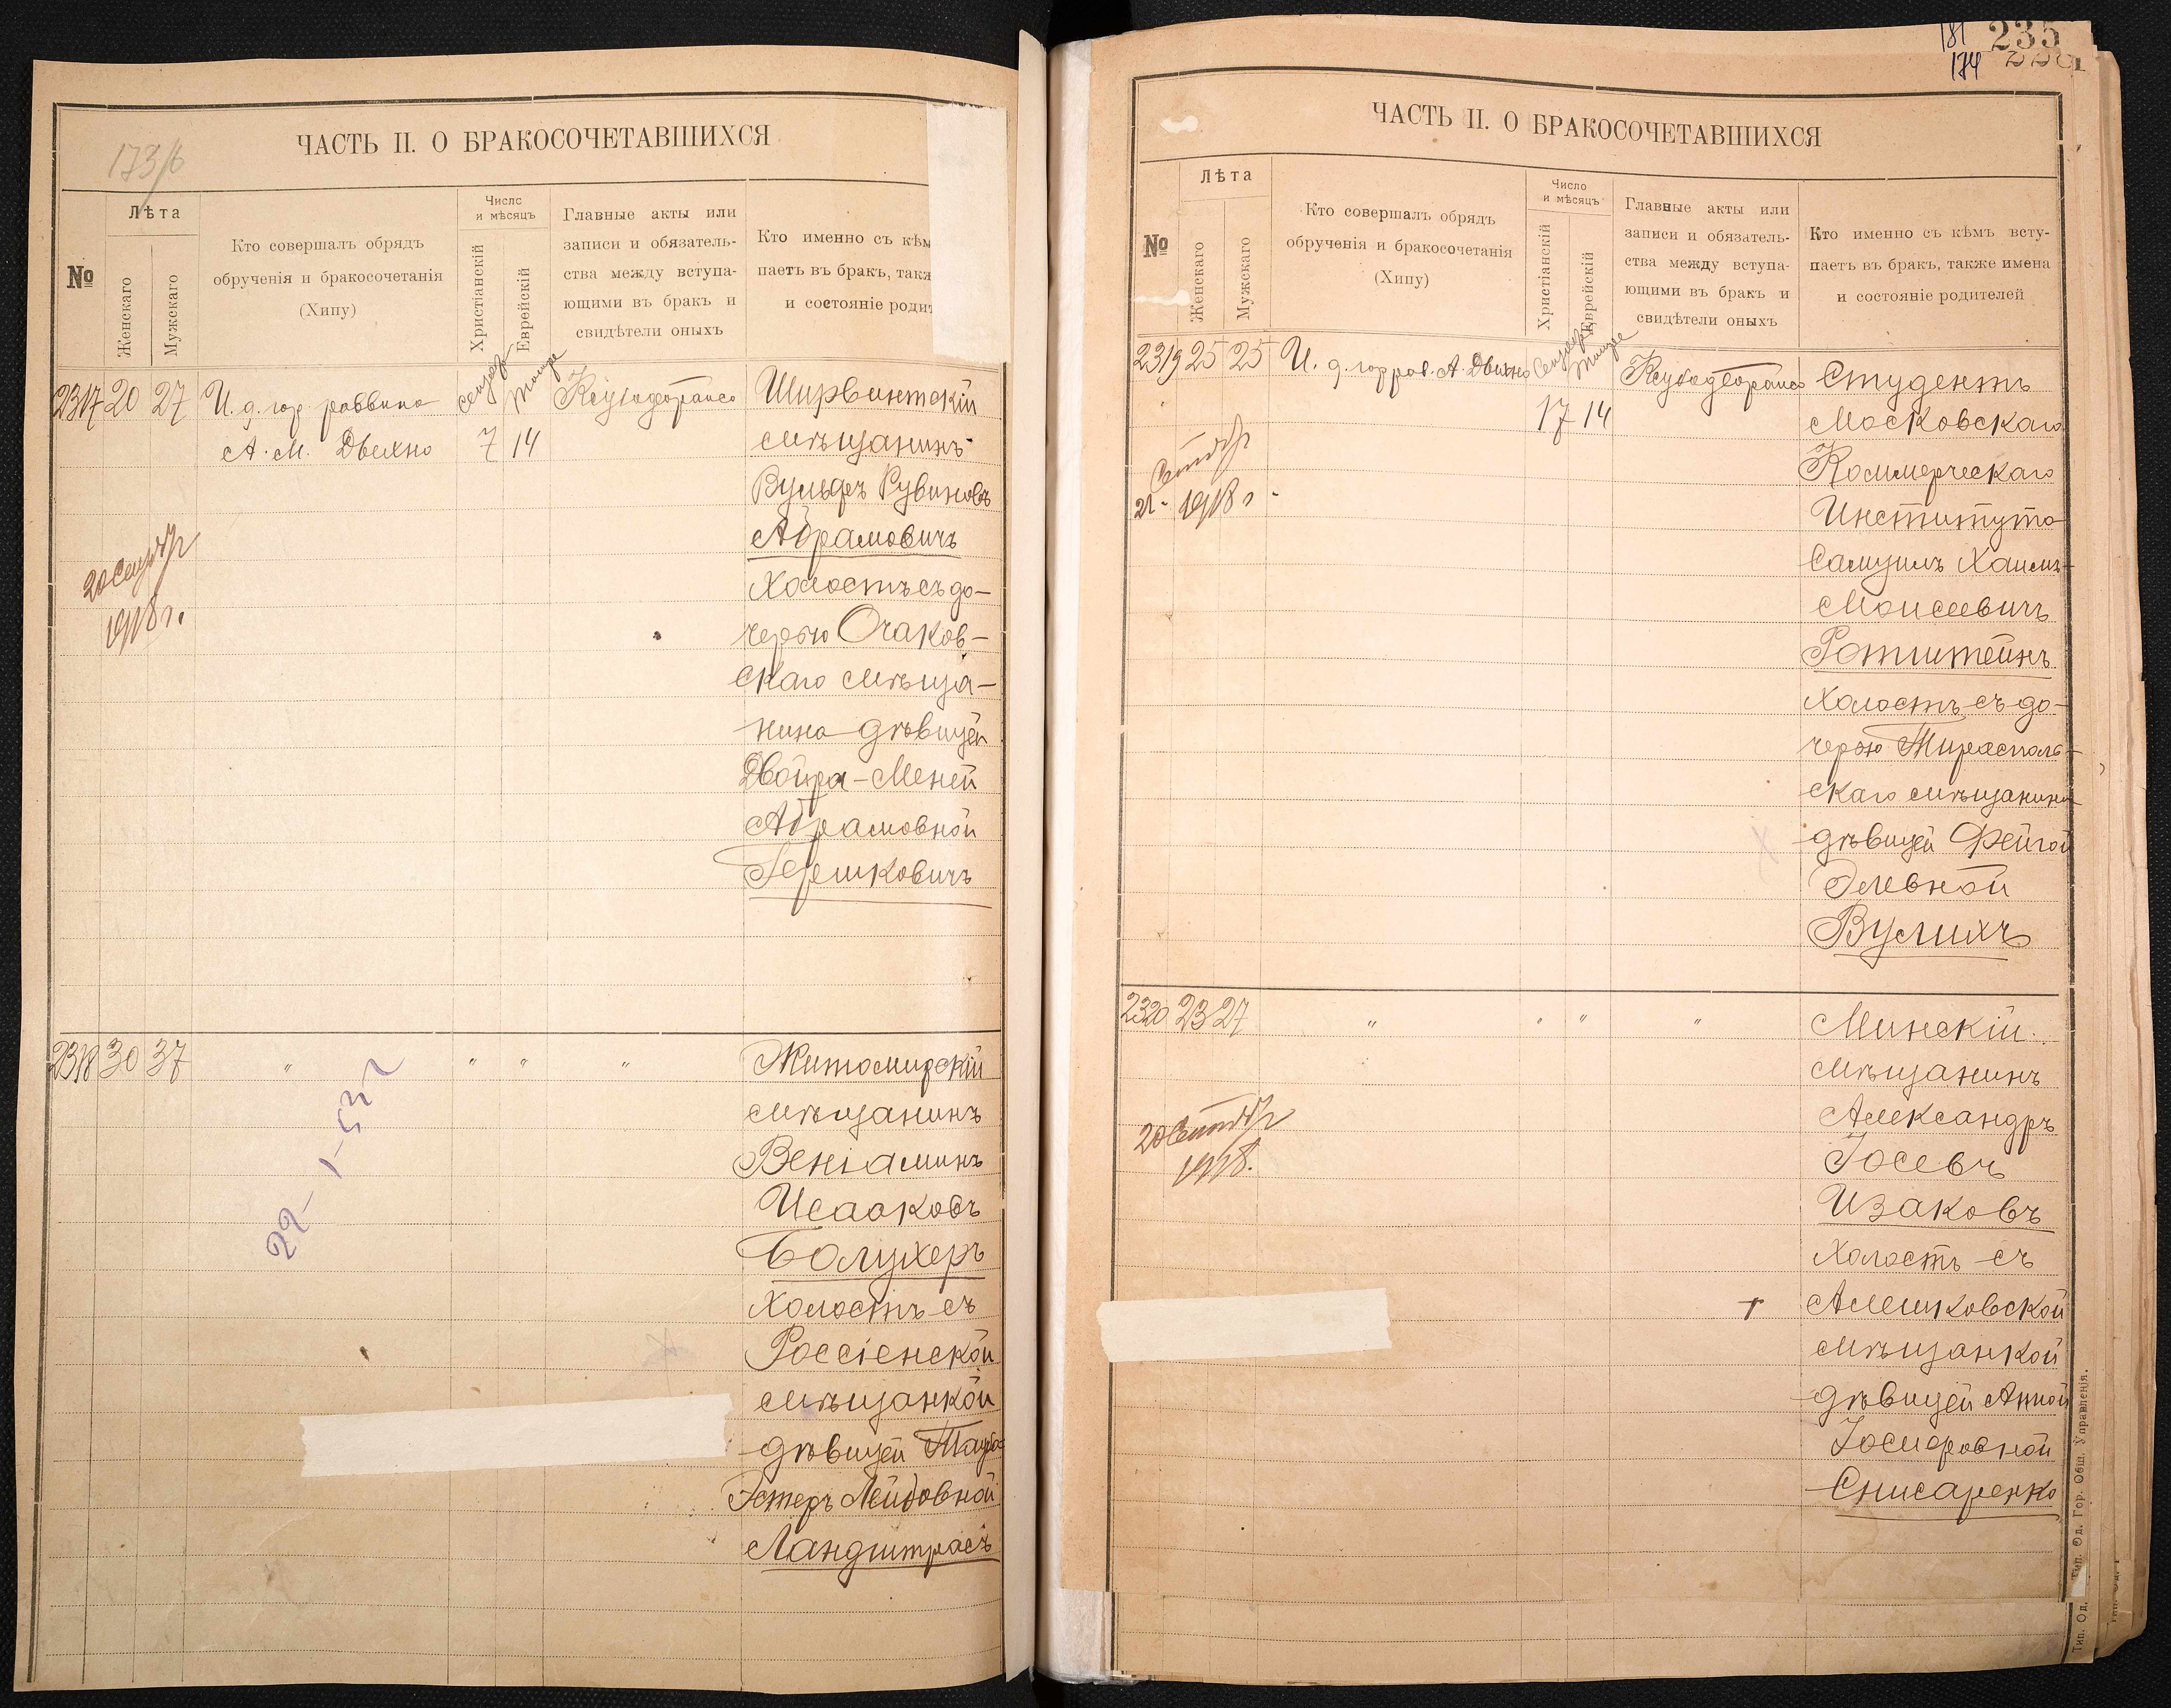 173/б
ЧАСТЬ II. О БРАКОСОЧЕТАВШИХСЯ
№
Лѣта
Женскаго
Мужскаго
Кто совершалъ обрядъ
обрученія и бракосочетанія
(Хипу)
Число
и мѣсяцъ
Христіанскій
Еврейскій
Главные акты или
записи и обязатель-
ства между вступа-
ющими въ бракъ и
свидѣтели оныхъ
Кто именно съ кѣм
паетъ въ бракъ, такж
и состояніе родит
2317 20 27 И. д. гор. раввина
А. М. Двехно
7 14
Ширвинтскій
мѣщанинъ
Вульфъ Рувиновъ
Абрамовичъ
холостъ съ до-
черью Очаков-
скаго мѣща-
нина дѣвицей
Двойра-Меней
Абрамовной
Гершковичъ
20 Сентября
1918 г.
2318 30 37 " " " "
Житомирскій
мѣщанинъ
Веніаминъ
Исааковъ
Болухеръ
холостъ съ
Россіенской
мѣщанкой
дѣвицей Тауба
Эстеръ Лейбовной
Ландштрасъ
181 235
174
ЧАСТЬ II. О БРАКОСОЧЕТАВШИХСЯ
№
Лѣта
Женскаго
Мужскаго
Кто совершалъ обрядъ
обрученія и бракосочетанія
(Хипу)
Число
и мѣсяцъ
Христіанскій
Еврейскій
Главные акты или
записи и обязатель-
ства между вступа-
ющими въ бракъ и
свидѣтели оныхъ
Кто именно съ кѣмъ всту-
паетъ въ бракъ, также имена
и состояніе родителей
2319 25 25 И. д. гор. рав. А. Двехно
17 14
Студентъ
Московскаго
Коммерческаго
Института
Самуилъ Хаимъ-
Моисеевичъ
Ротштейнъ
холостъ съ до-
черью Тирасполь-
скаго мѣщанина
дѣвицей Фейгой
Элевной
Вулихъ
21 1918 г.
2320 23 27 " " " "
Минскій
мѣщанинъ
Александръ
Іосевъ
Изаковъ
холостъ съ
Алешковской
мѣщанкой
дѣвицей Анной
Іосифовной
Снисаренко
20 Сентября
1918.
Тип. Од. Гор. Общ. Управленія.